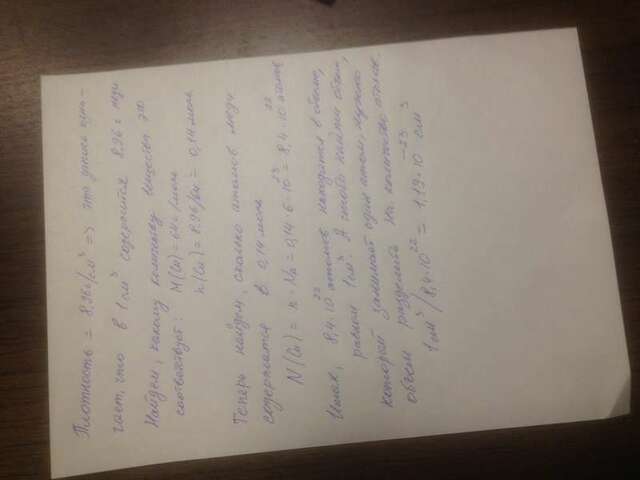 Плотность = 8,96г/см³ => это значит озна-
чает, что в 1 см³ содержится 8,96 г меди
Найдем, какому количеству вещества это
соответствует: M(Cu) = 64 г/моль
n(Cu) = 8.96/64 = 0,14 моль
Теперь найдем, сколько атомов меди
содержится в 0,14 моль
N(Cu) = n · Na = 0,14 · 6 · 10²³ = 8,4 · 10²² атомов
Итак, 8,4 · 10²² атомов находится в объеме,
равном 1 см³. А чтобы найти объем,
который занимает один атом, нужно
объем разделить на количество атомов.
1 см³/8,4 · 10²² = 1,19 · 10⁻²³ см³